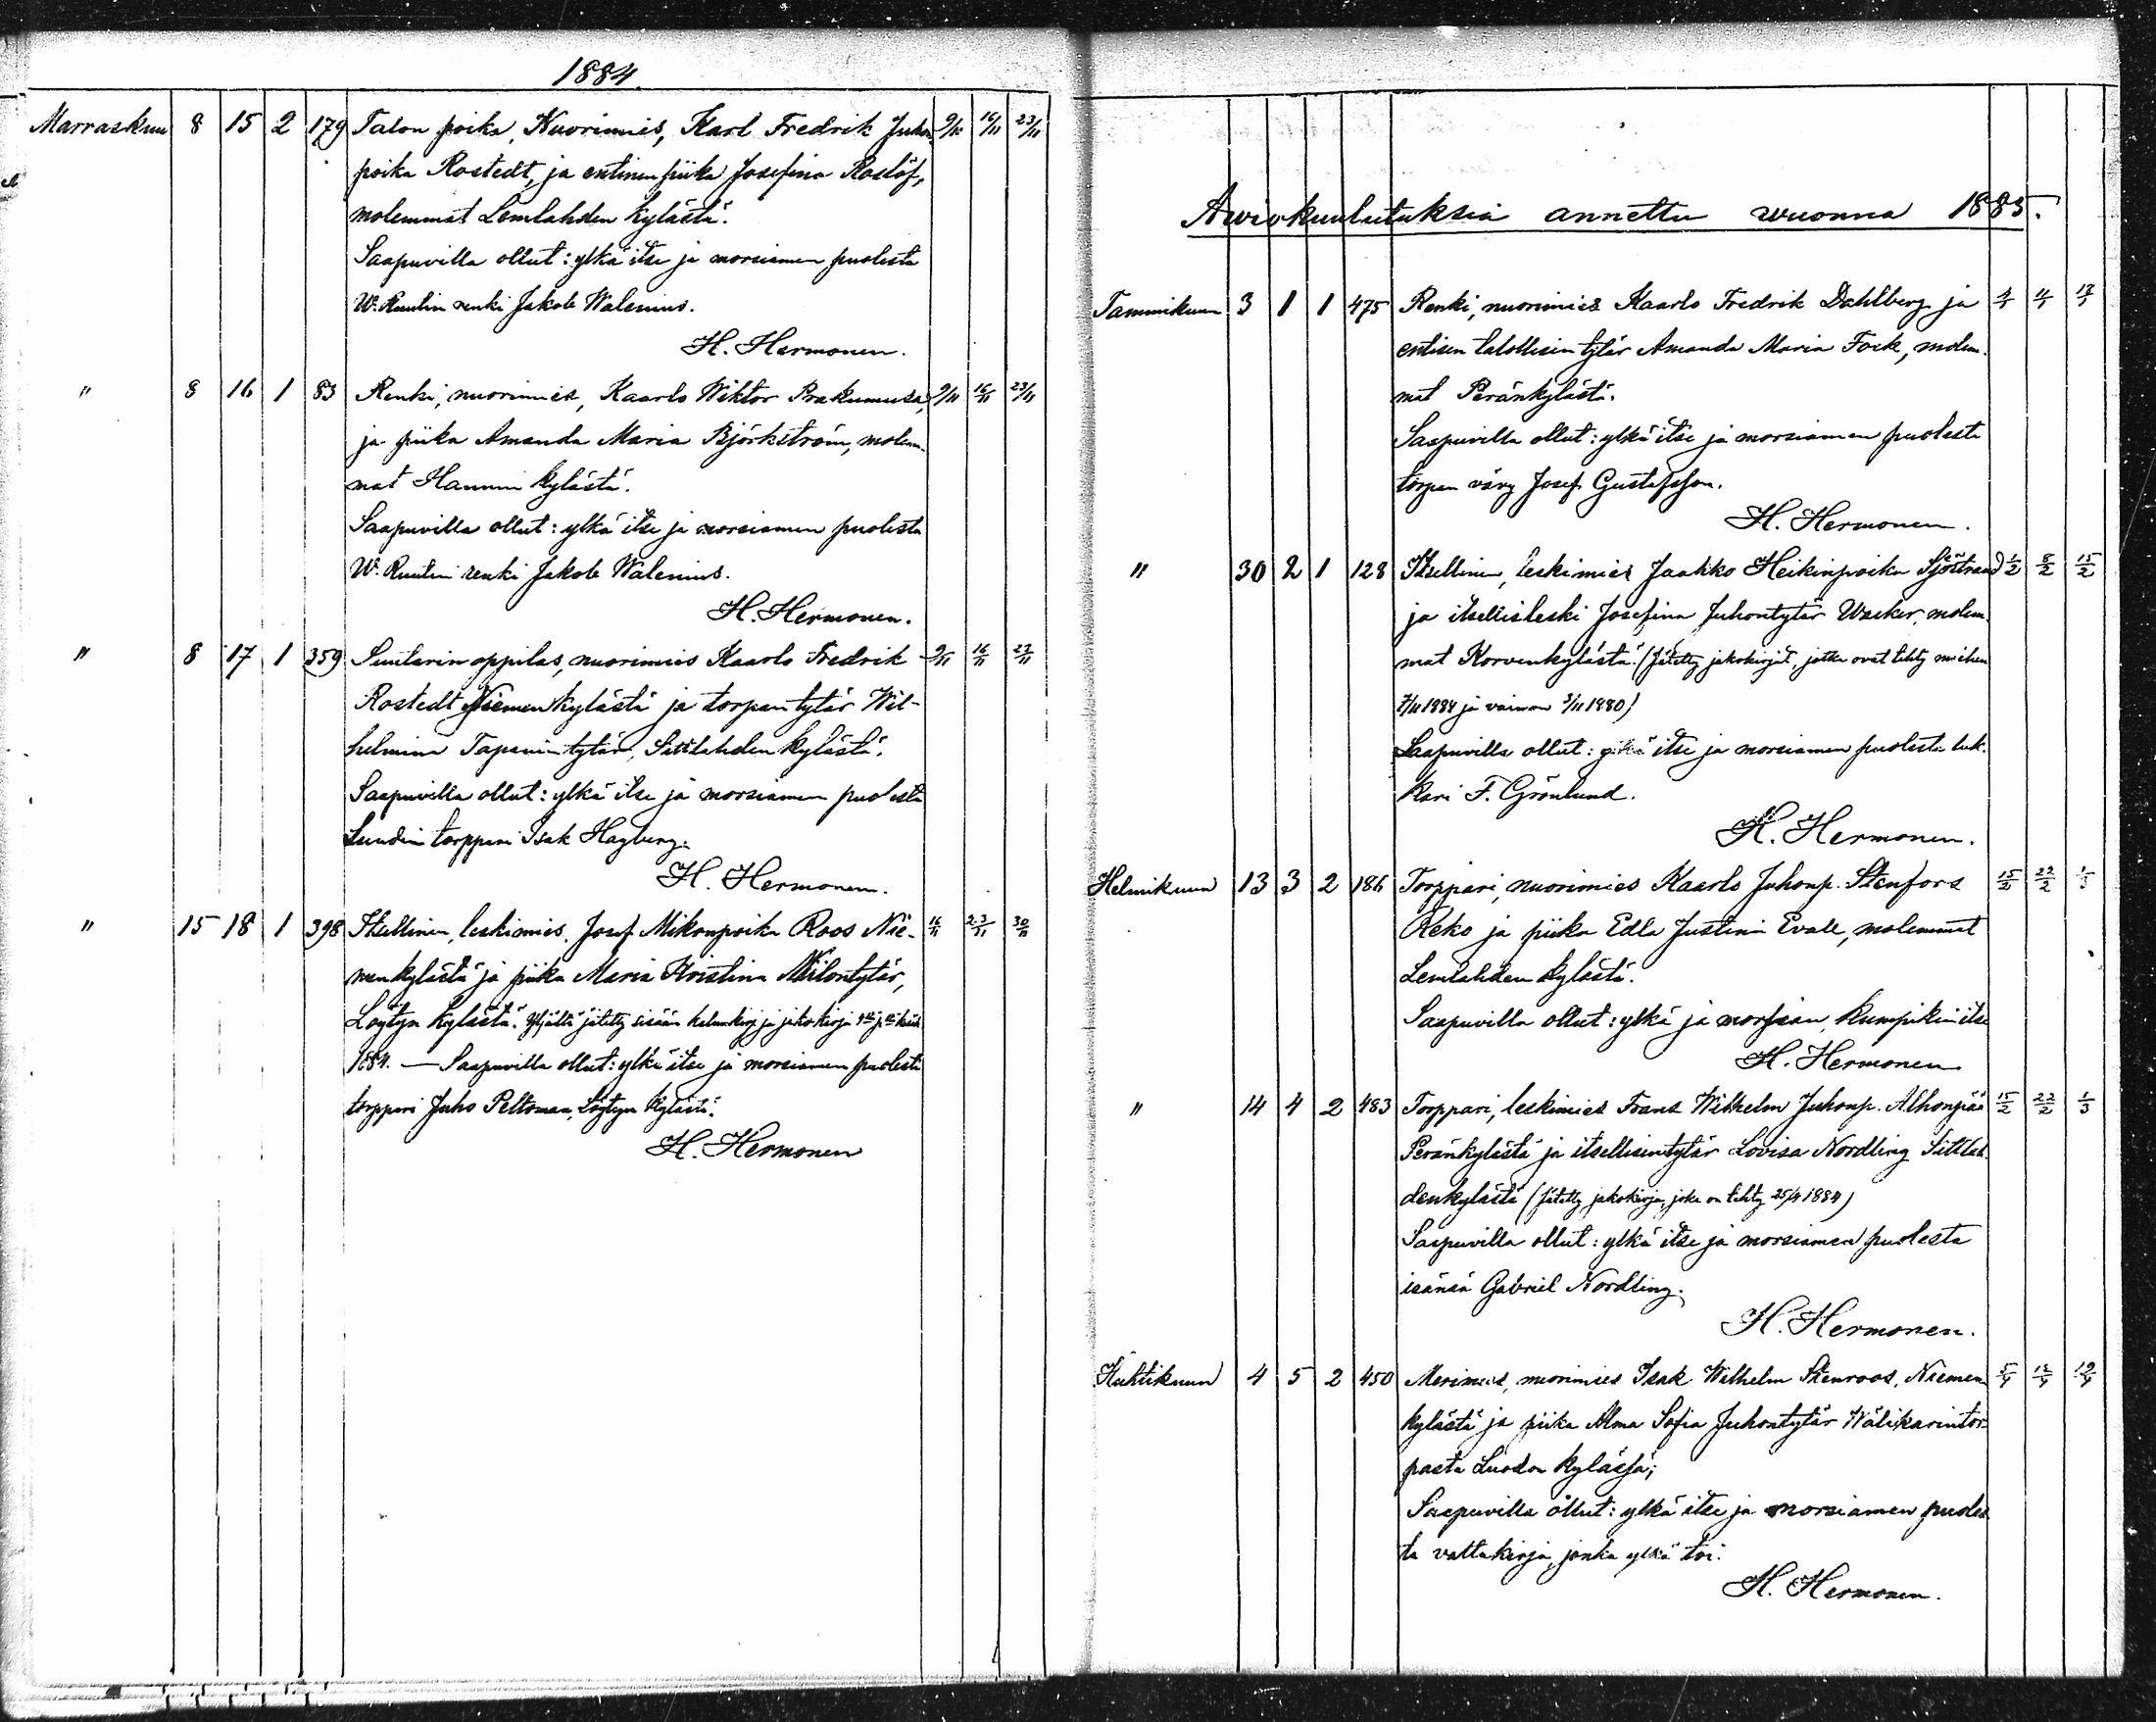 1884.
Marraskuu 8 15 2 179 Talon poika, Nuorimies, Karl Fredrik Juhon 9/11 16/11 23/11
poika Rostedt, ja entinen piika Josefina Roslöf,
molemmat Lemlahden kylästä.
Saapuvilla ollut: ylkä itse ja morsiamen puolesta
W. Ruulin renki Jakob Walenius.
H. Hermonen.
" 8 16 1 83 Renki, nuorimies, Kaarlo Wiktor Prakumusa, 9/11 16/11 23/11
ja piika Amanda Maria Björkström, molem-
mat Hannin kylästä.
Saapuvilla ollut: ylkä itse ja morsiamen puolesta
W. Ruulin renki Jakob Walenius.
H. Hermonen.
" 8 17 1 359 Suutarin oppilas, nuorimies Kaarlo Fredrik 9/11 16/11 23/11
Rostedt Niemenkylästä ja torpantytär Wil-
helmina Tapanintytär, Sittlahden kylästä.
Saapuvilla ollut: ylkä itse ja morsiamen puolesta
Lundin torppari Isak Hagberg.
H. Hermonen.
" 15 18 1 398 Itsellinen, leskimies, Josef Mikonpoika Roos Nie- 16/11 23/11 30/11
menkylästä ja piika Maria Kristina Milontytär,
Löytyn kylästä. Yljältä jätetty sisään ja jakokirja
1884. — Saapuvilla ollut: ylkä itse ja morsiamen puolesta
torppari Juho Peltoman, Löytyn kylästä.
H. Hermonen
Awiokuulutuksia annettu wuonna 1885.
Tammikuun 3 1 1 475 Renki, nuorimies Kaarlo Fredrik Dahlberg ja 4/1 11/1
entisen talollisen tytär Amanda Maria Fock, molem-
mat Peränkylästä.
Saapuvilla ollut: ylkä itse ja morsiamen puolesta
torpan vävy Josef Gustafsson.
H. Hermonen.
" 30 2 1 128 Itsellinen, leskimies Jaakko Heikinpoika Sjöstrand 1/2 8/2 15/2
ja itsellisleski Josefina Juhontytär Wacker, molem-
mat Korvenkylästä. (Jätetty jakokirjat, jotka ovat tehty miehen
7/11 1884 ja vaimon 3/11 1880)
Saapuvilla ollut: ylkä itse ja morsiamen puolesta luk-
kari F. Grönlund.
H. Hermonen.
Helmikuun 13 3 2 186 Torppari, nuorimies Kaarlo Juhonp. Stenfors 15/2 22/2 1/3
Reko ja piika Edla Justina Evall, molemmat
Lemlahden kylästä.
Saapuvilla ollut: ylkä ja morsian, kumpikin itse
H. Hermonen
" 14 4 2 483 Torppari, leskimies Frans Wilhelm Juhonp. Alhonpää 15/2 22/2 1/3
Peränkylästä ja itsellisentytär Lovisa Nordling Sittlah-
denkylästä (Jätetty jakokirja, joka on tehty 25/4 1884)
Saapuvilla ollut: ylkä itse ja morsiamen puolesta
isänsä Gabriel Nordling.
H. Hermonen.
Huhtikuun 4 5 2 450 Merimies, nuorimies Isak Wilhelm Stenroos, Niemen 5/4 12/4 19/4
kylästä ja piika Alma Sofia Juhontytär Wälikarintor-
pasta Luodon kylässä;
Saapuvilla ollut: ylkä itse ja morsiamen puoles-
ta valtakirja, jonka ylkä toi.
H. Hermonen.